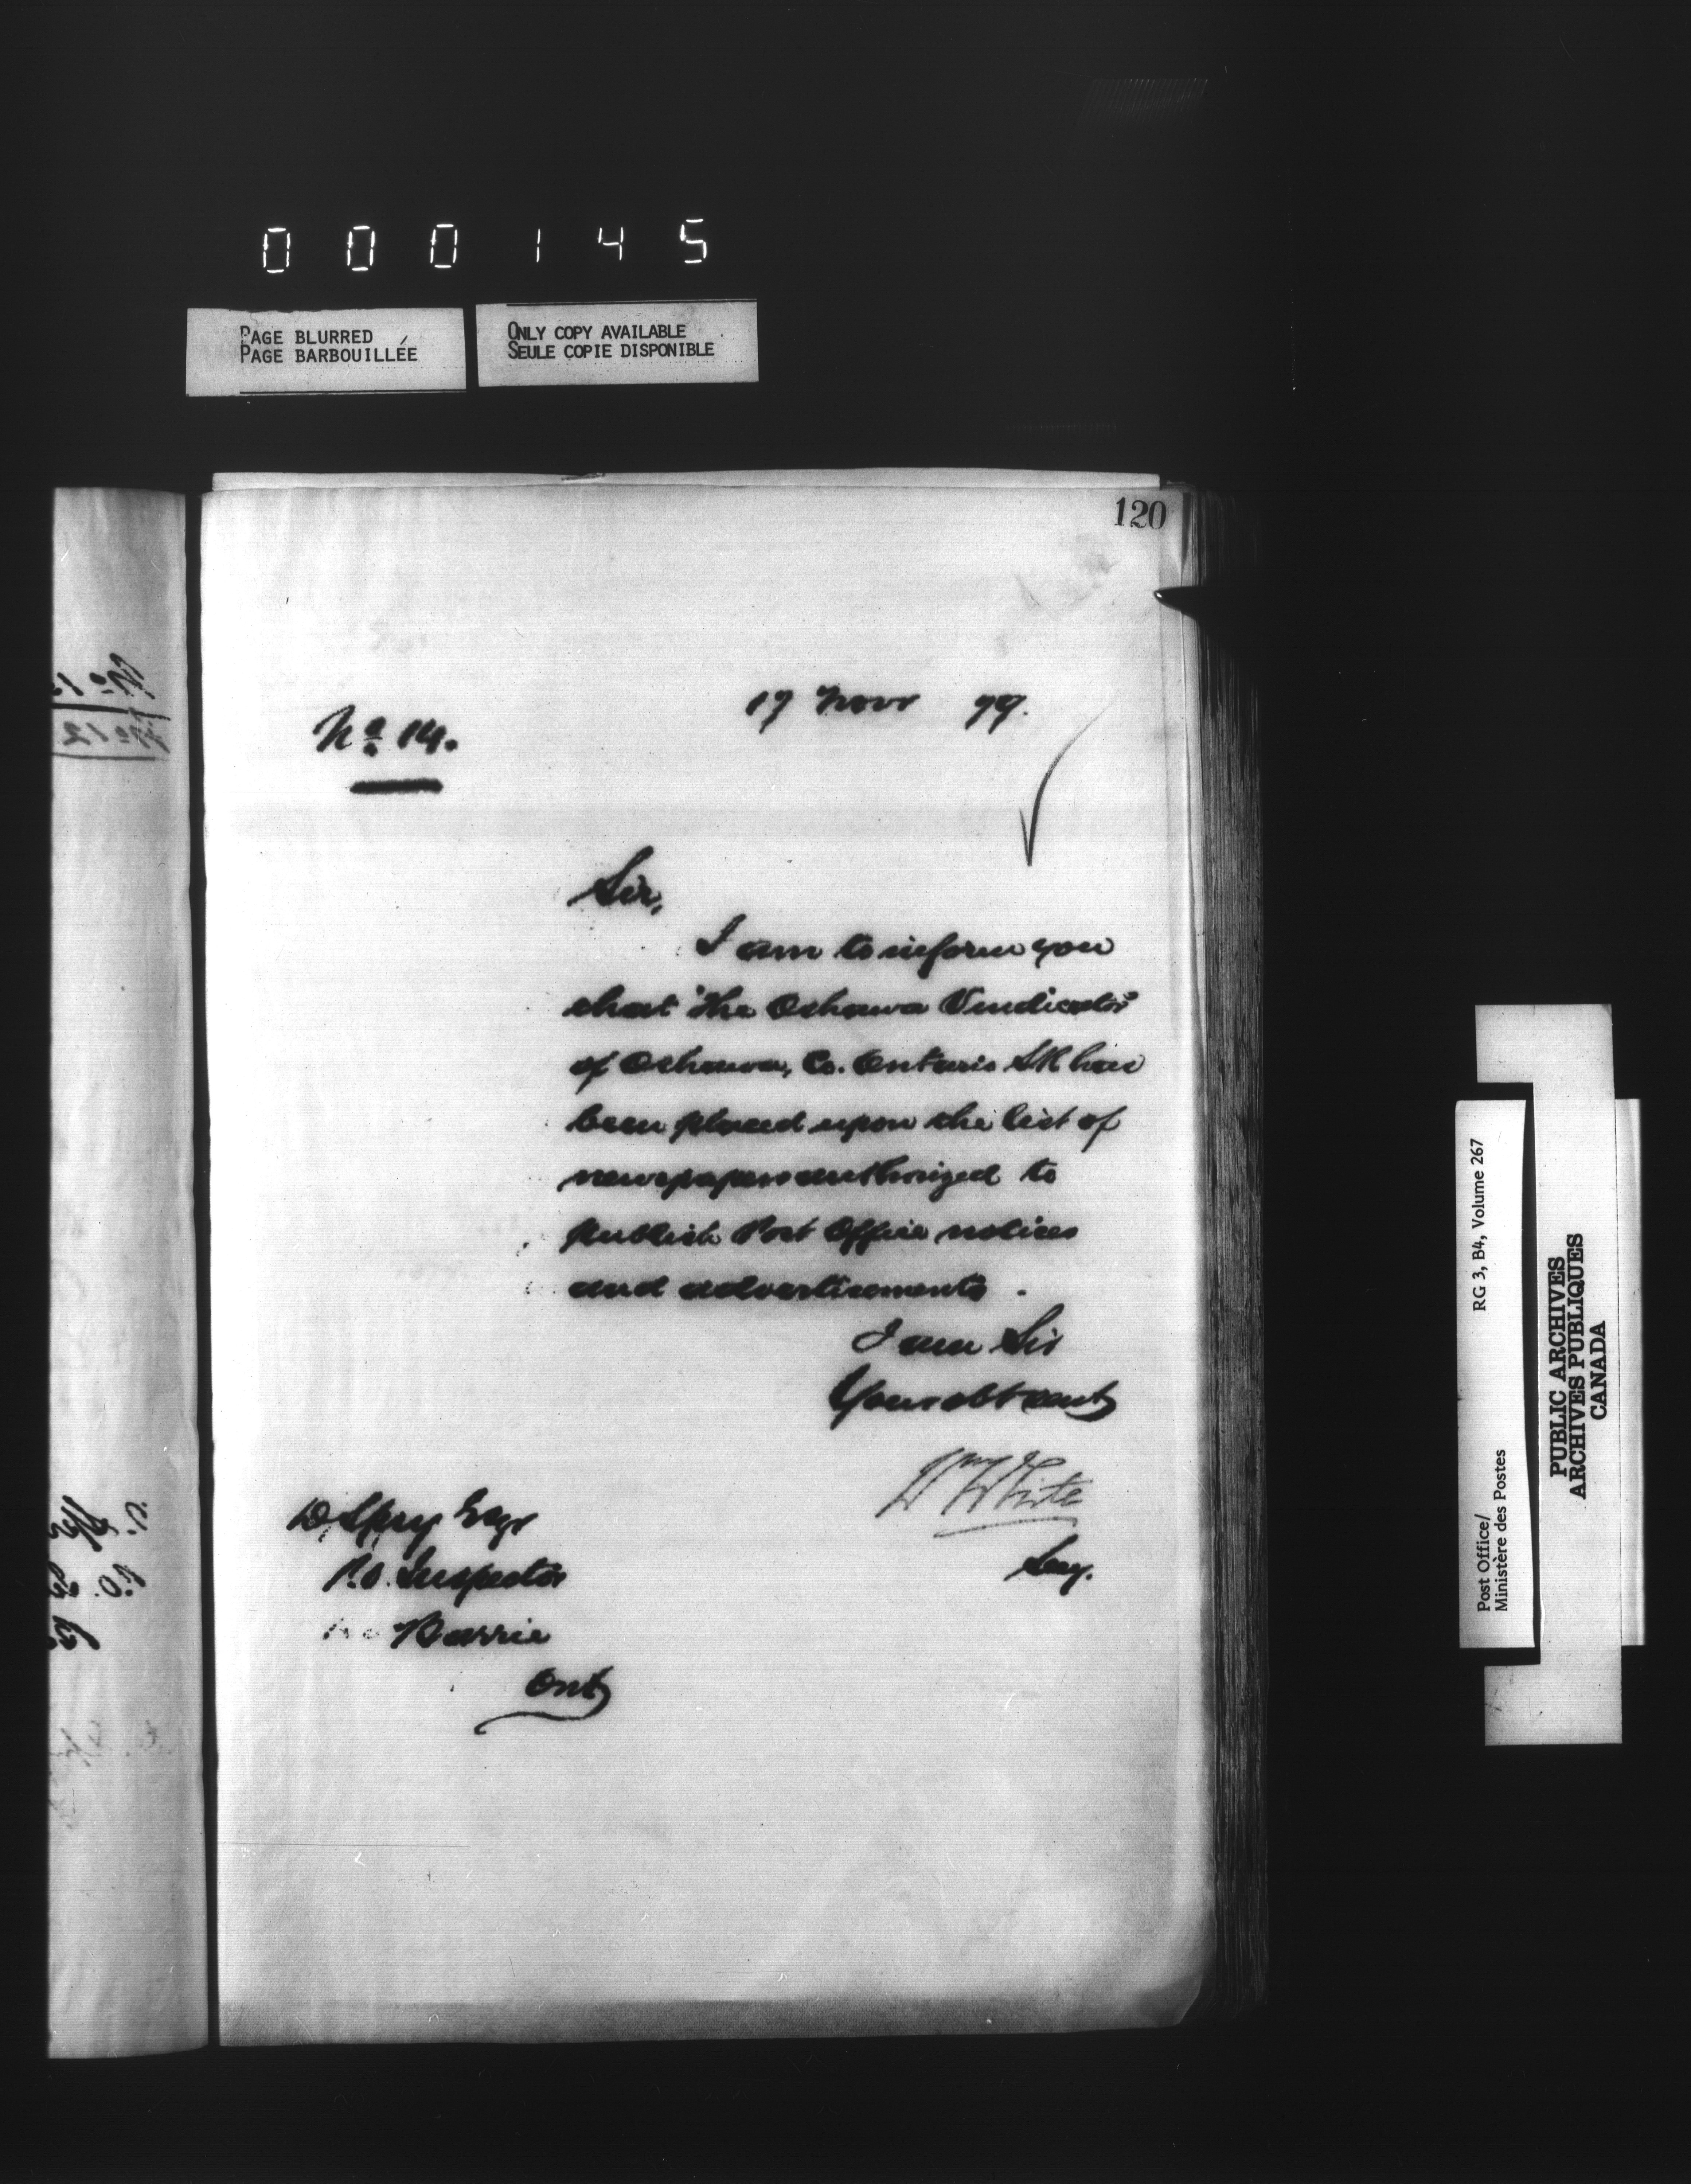 000145
PAGE BLURRED
PAGE BARBOUILLÉE
ONLY COPY AVAILABLE
SEULE COPIE DISPONIBLE
120
No 14.
17 Novr 79.
Sir,
I am to inform you
that "The Oshawa Vindicator"
of Oshawa, Co. Ontario SR has
been placed upon the list of
newspapers authorized to
publish Post Office notices
and advertisements.
I am Sir
Your obt servt
Wm White
Secy.
D Spry Esqr
P.O. Inspector
Barrie
Ont
RG 3, B4, Volume 267
Post Office/
Ministère des Postes
PUBLIC ARCHIVES
ARCHIVES PUBLIQUES
CANADA